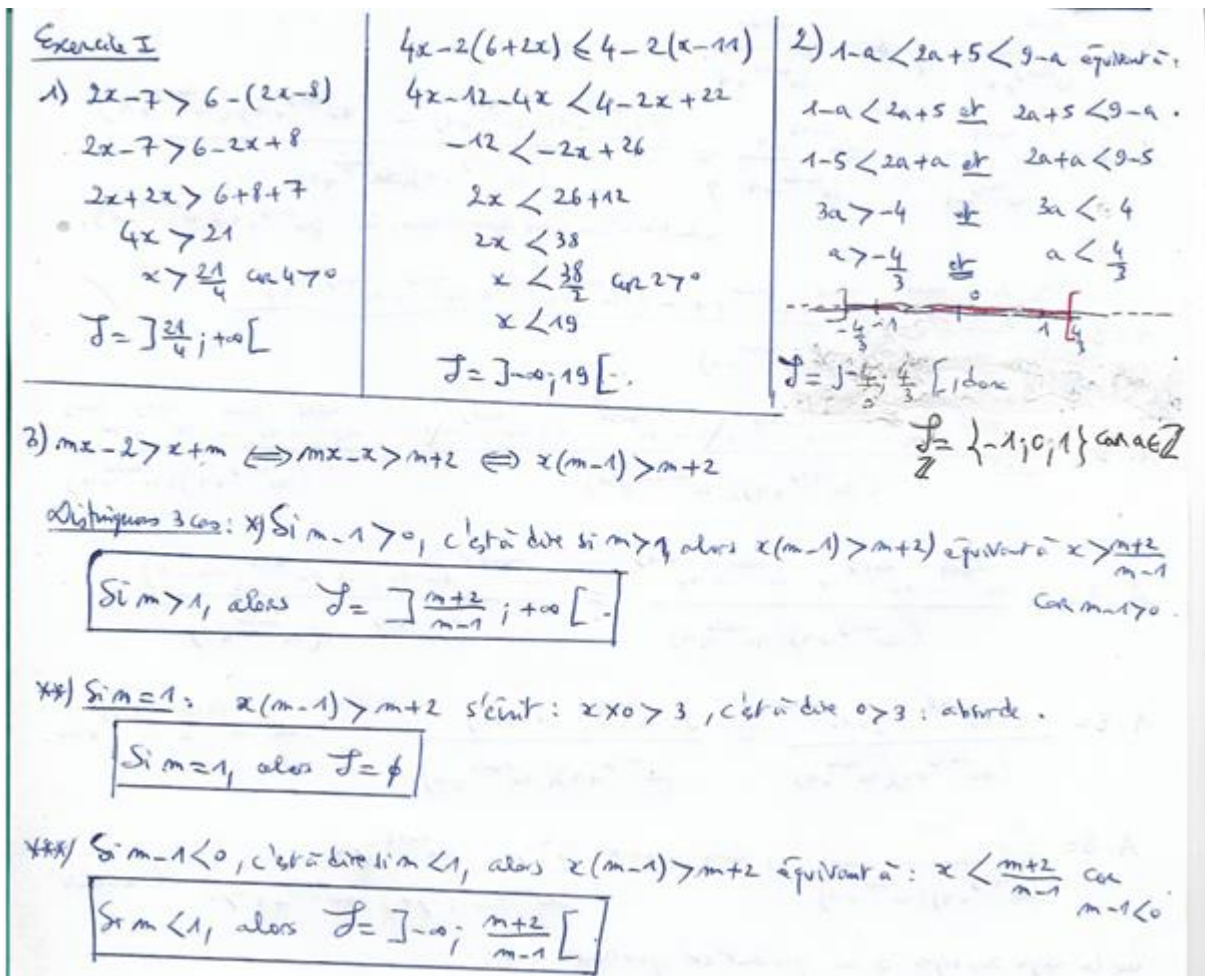 Exercice I
1) 2x-7 > 6-(2x-8)
2x-7 > 6-2x+8
2x+2x > 6+8+7
4x > 21
x > 21/4 car 4>0
S = ]21/4 ; +∞[
4x-2(6+2x) ≤ 4-2(x-11)
4x-12-4x < 4-2x+22
-12 < -2x+26
2x < 26+12
2x < 38
x < 38/2 car 2>0
x < 19
S = ]-∞; 19[.
2) 1-a < 2a+5 < 9-a équivaut à:
1-a < 2a+5 et 2a+5 < 9-a.
1-5 < 2a+a et 2a+a < 9-5
3a > -4 et 3a < 4
a > -4/3 et a < 4/3
0
-4/3 -1 1 4/3
S = ]-4/3; 4/3[, donc
S_ℤ = {-1; 0; 1} car a∈ℤ
3) mx-2 > x+m ⟺ mx-x > m+2 ⟺ x(m-1) > m+2
Distinguons 3 cas: *) Si m-1 > 0, c'est à dire si m > 1, alors x(m-1) > m+2) équivaut à x > (m+2)/(m-1)
car m-1>0.
Si m > 1, alors S = ](m+2)/(m-1) ; +∞[.
**) Si m=1: x(m-1) > m+2 s'écrit: x×0 > 3, c'est à dire 0>3: absurde.
Si m=1, alors S = ∅
***) Si m-1<0, c'est à dire si m<1, alors x(m-1) > m+2 équivaut à: x < (m+2)/(m-1) car
m-1<0
Si m<1, alors S = ]-∞; (m+2)/(m-1)[.